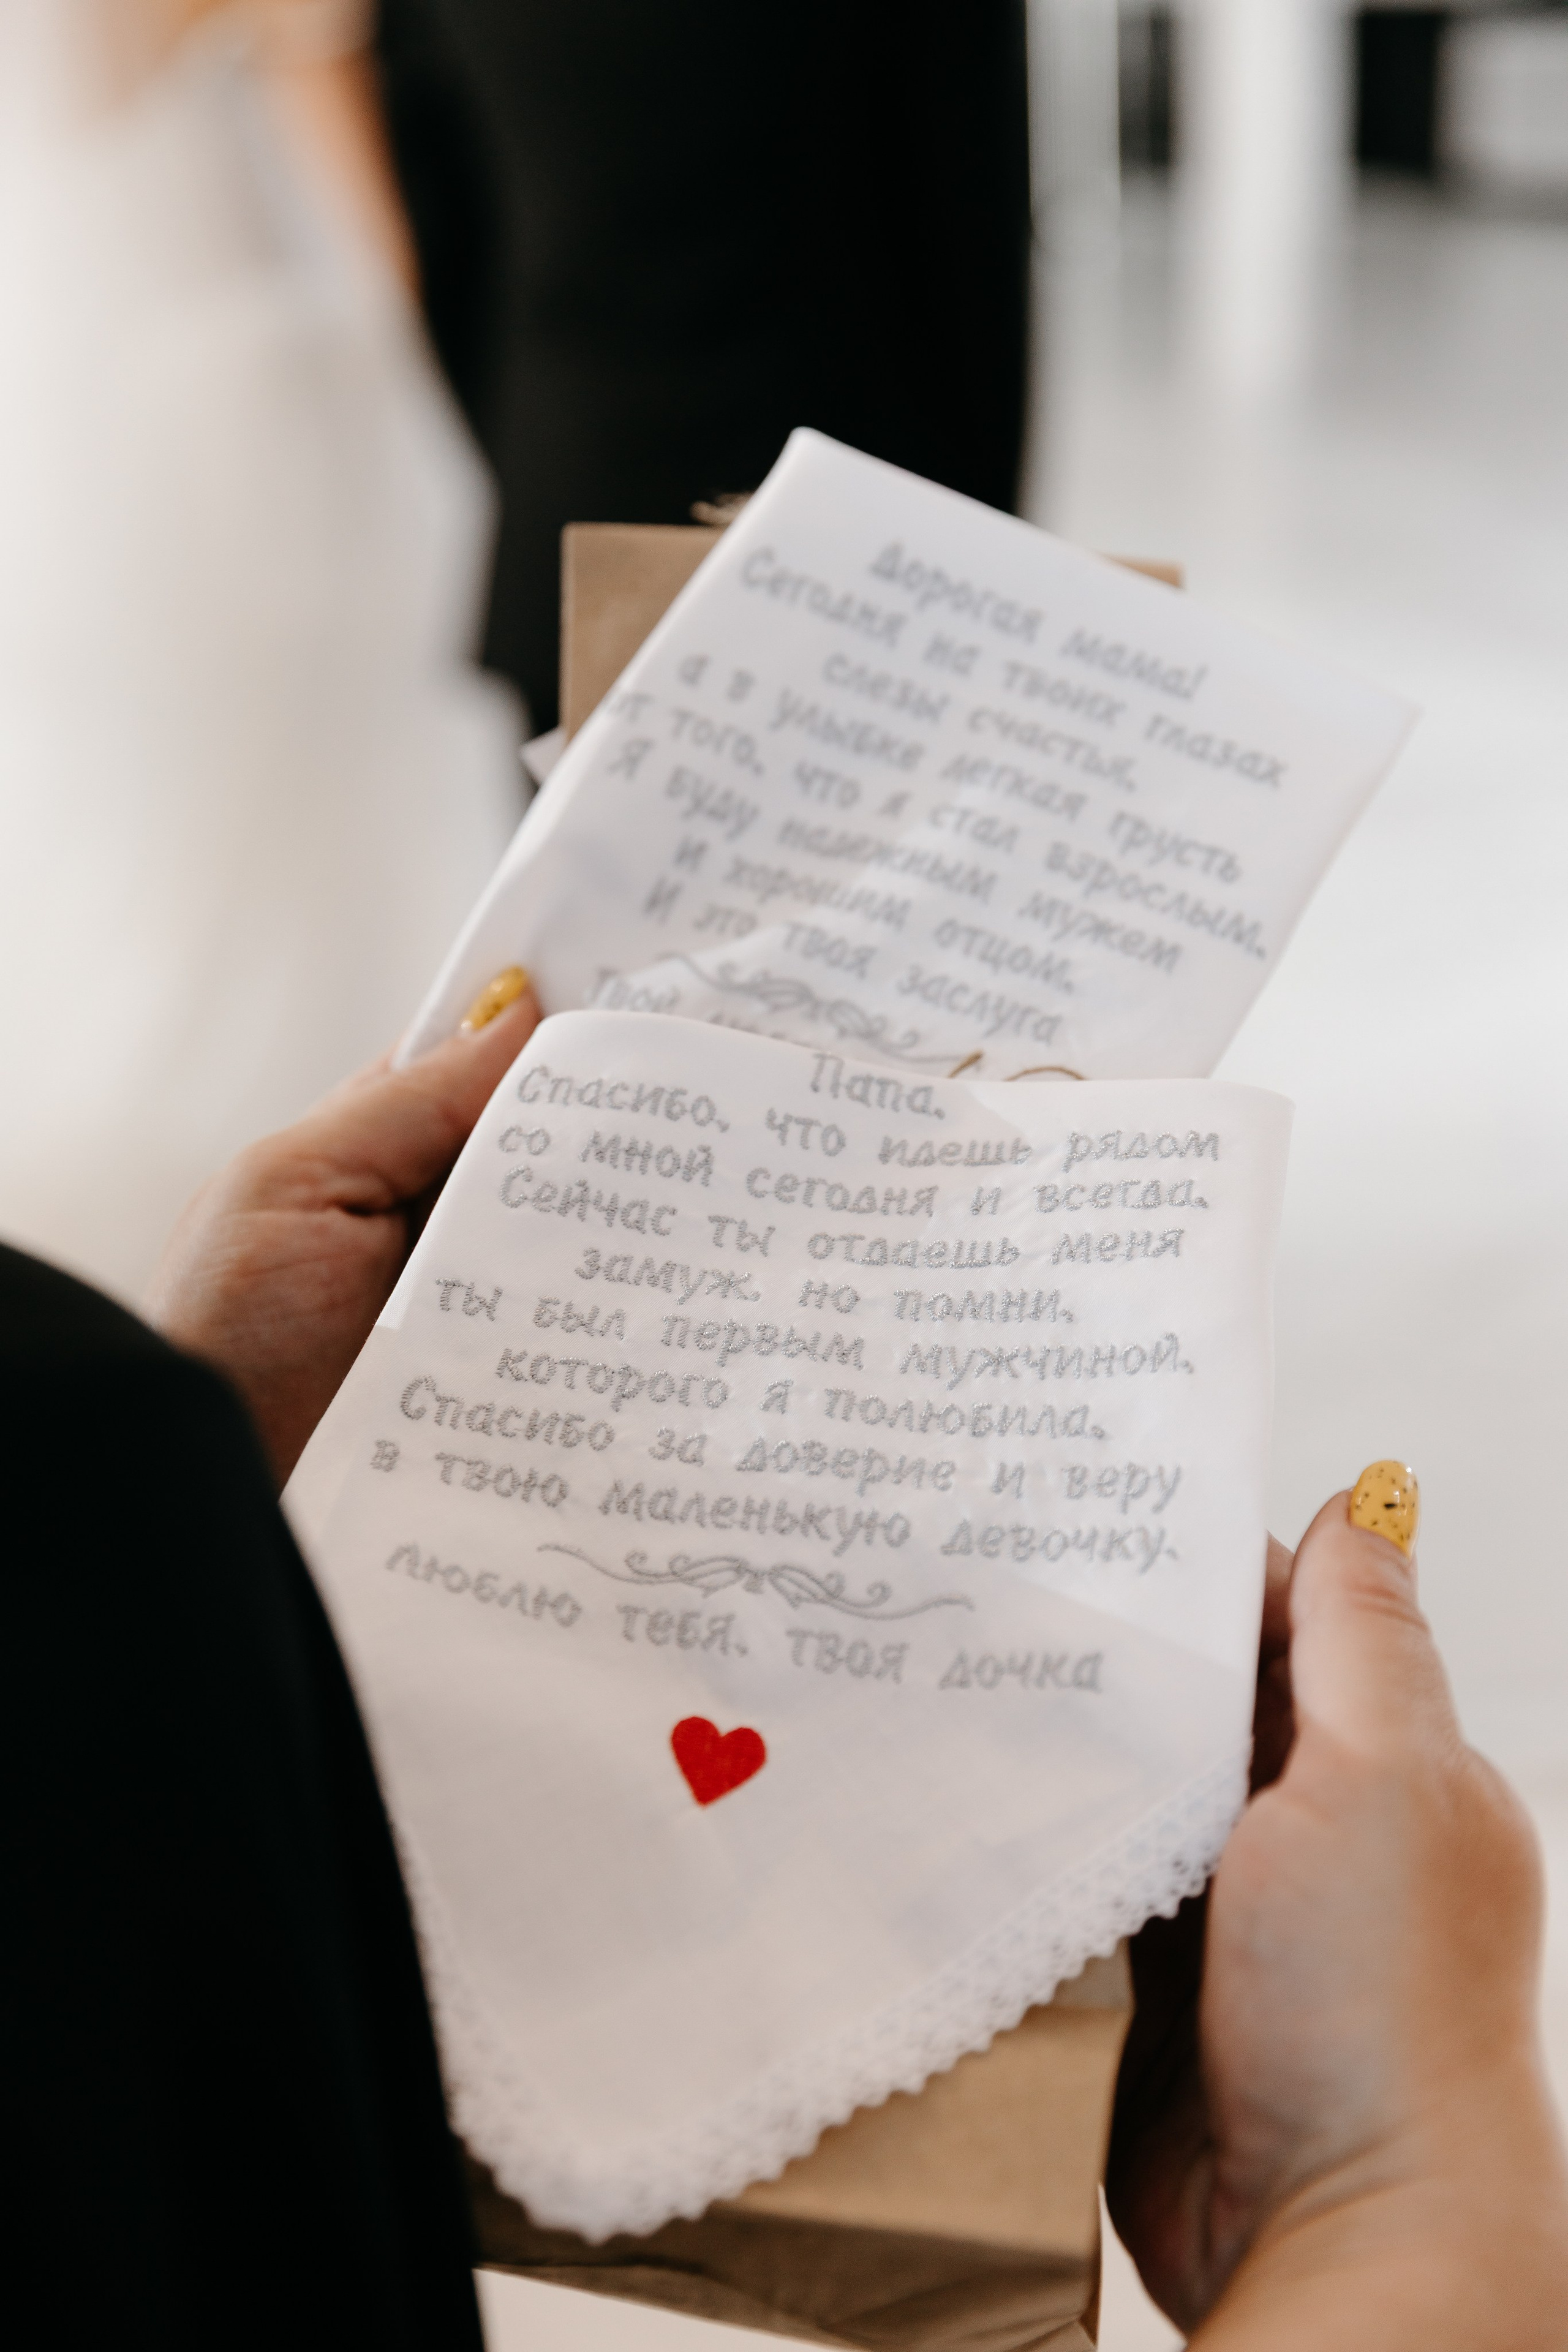 Дорогая мама!
Сегодня на твоих глазах
слезы счастья,
а в улыбке легкая грусть
от того, что я стал взрослым.
Я буду надежным мужем
и хорошим отцом.
И это твоя заслуга
Твой
Папа,
Спасибо, что идешь рядом
со мной сегодня и всегда.
Сейчас ты отдаешь меня
замуж, но помни,
ты был первым мужчиной,
которого я полюбила.
Спасибо за доверие и веру
в твою маленькую девочку.
люблю тебя, твоя дочка